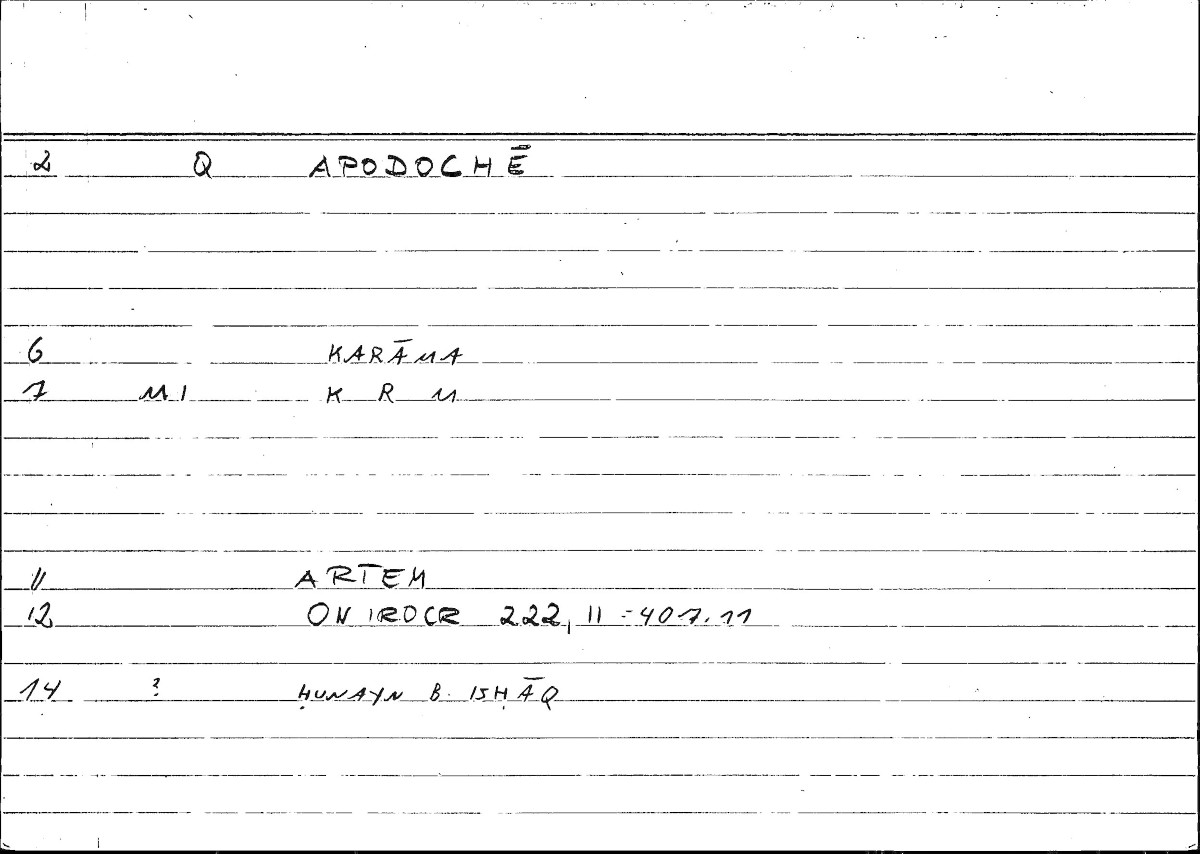 2 Q APODOCHĒ
6 KARĀMA
7 M1 K R M
11 ARTEM
12 ONIROCR 222, 11 = 407.11
14 ? ḤUNAYN B. ISḤĀQ